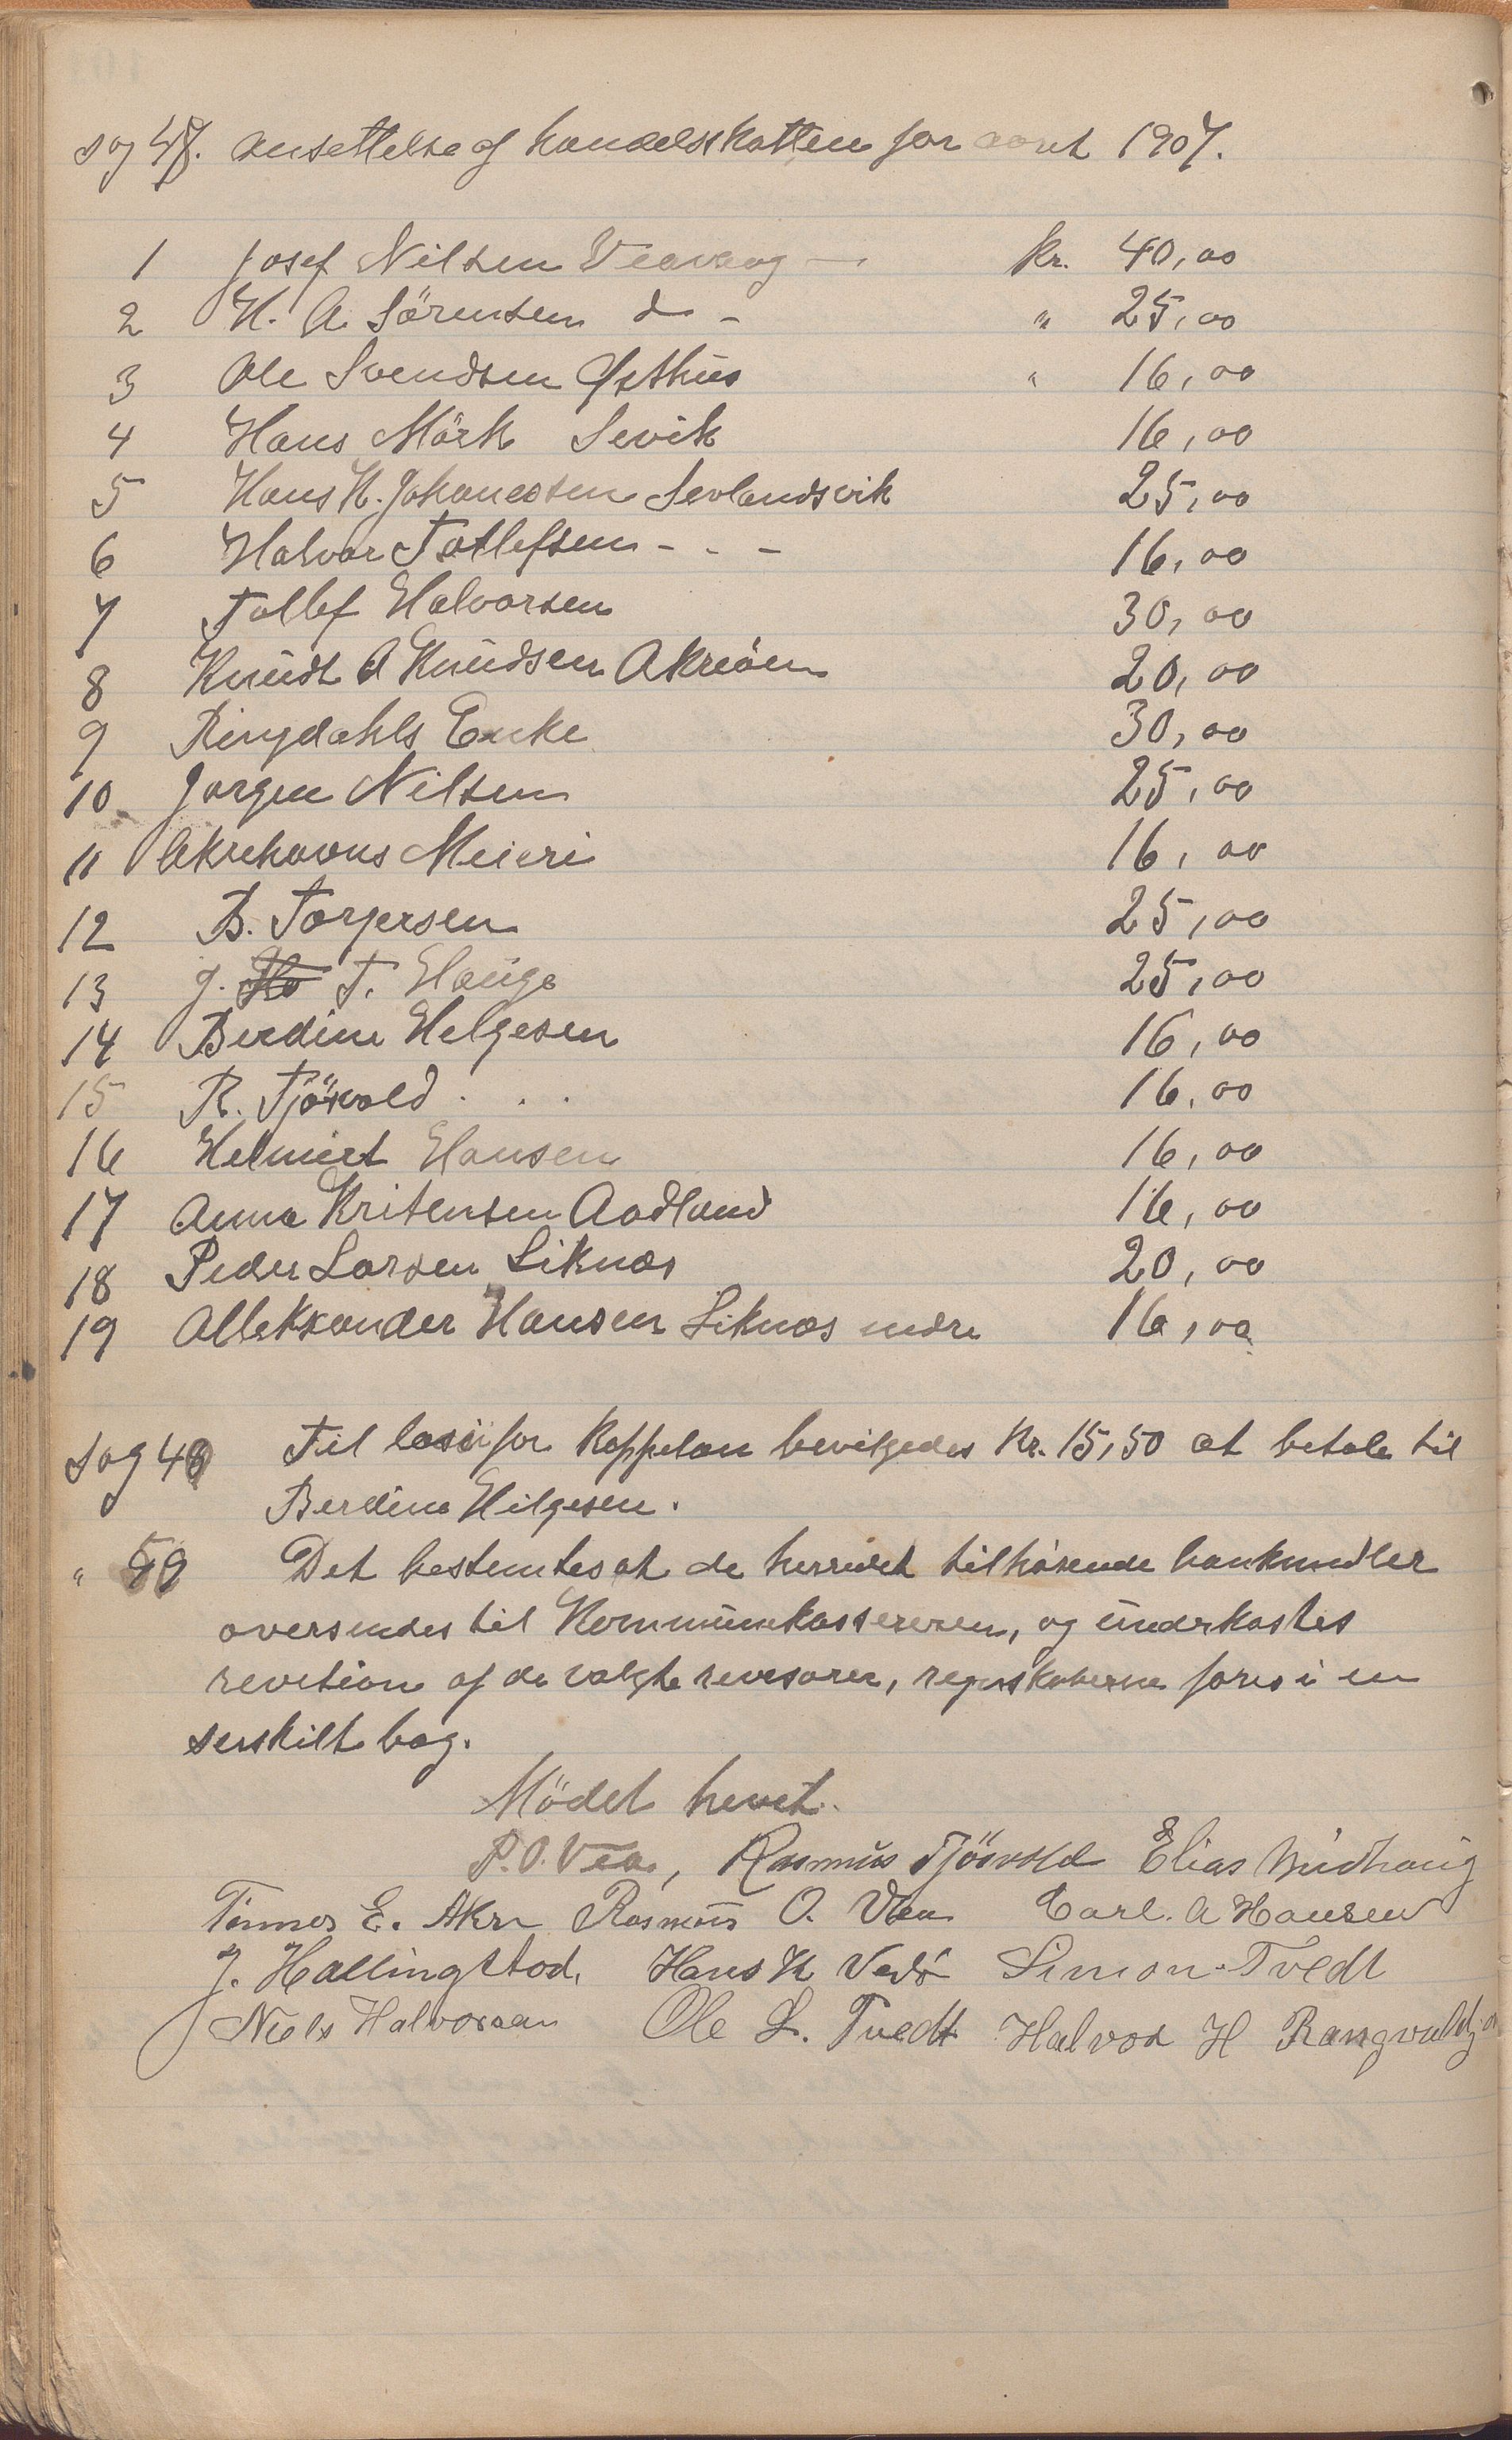 sag 47. Ansettelse af handelsskatten for aaret 1907.
1 Josef Nilsen Veavaag — kr. 40,00
2 H. A. Sörensen do - " 25,00
3 Ole Svendsen Østhus " 16,00
4 Hans Mörk Sevik 16,00
5 Hans H. Johanesen Sevlandsvik 25,00
6 Halvor Tollefsen - - - 16,00
7 Tollef Halvorsen 30,00
8 Knudt A Knudsen Akreön 20,00
9 Ringdahls Enke 30,00
10 Jorgen Nilsen 25,00
11 Akrehavns Meieri 16,00
12 B. Torgersen 25,00
13 J. T. Hauge 25,00
14 Berdine Helgesen 16,00
15 R. Tjösvold . . . 16,00
16 Helmiet Hansen 16,00
17 Anna Kritensen Aadland 16,00
18 Peder Larsen Liknæs 20,00
19 Alleksander Hansen Liknæs nedre 16,00
Sag 48 Til losii for Kappelan bevilgedes Kr. 15,50 at betale til
Berdine Hilgesen.
" 49 Det bestemtes at de herredet tilhörende bankmidler
oversendes til Kommunekassereren, og underkastes
revetion af de valgte revisorer, regnskaberne föres i en
serskilt bog.
Mödet hevet.
P. O. Vea, Rasmus Tjösvold Elias Midhaug
Tönnes E. Akre Rasmus O. Vea Carl. A Hansen
J. Hallingstad, Hans K Vedö Simon Tvedt
Niels Halvorsen Ole L. Tvedt Halvor H Rangvaldj